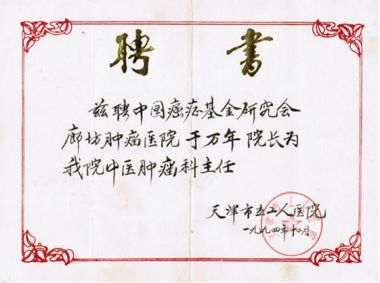 聘书
兹聘中国癌症基金研究会
廊坊肿瘤医院于万年院长为
我院中医肿瘤科主任
天津市立工人医院
一九九四年十月